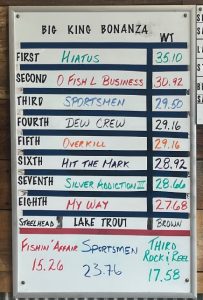 BIG KING BONANZA
WT
FIRST HIATUS 35.10
SECOND O FISH L BUSINESS 30.92
THIRD SPORTSMEN 29.50
FOURTH DEW CREW 29.16
FIFTH OVERKILL 29.16
SIXTH HIT THE MARK 28.92
SEVENTH SILVER ADDICTION II 28.66
EIGHTH MY WAY 27.68
STEELHEAD LAKE TROUT BROWN
FISHIN' AFFAIR SPORTSMEN THIRD ROCK & REEL
15.26 23.76 17.58